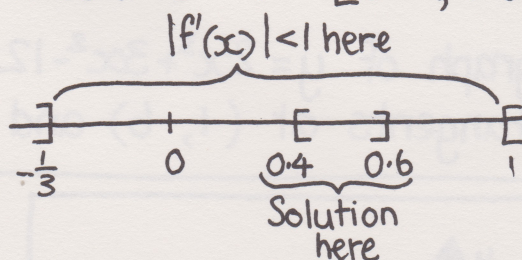 |f'(x)| < 1 here
-1/3 0 0.4 0.6 1
Solution
here